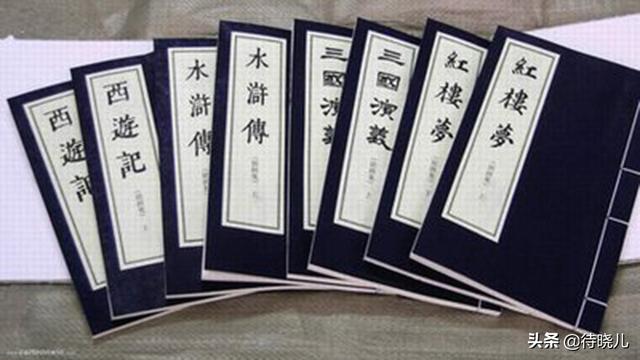 西遊記
西遊記
水滸傳
水滸傳
三國演義
三國演義
紅樓夢
紅樓夢
头条 @待晓儿